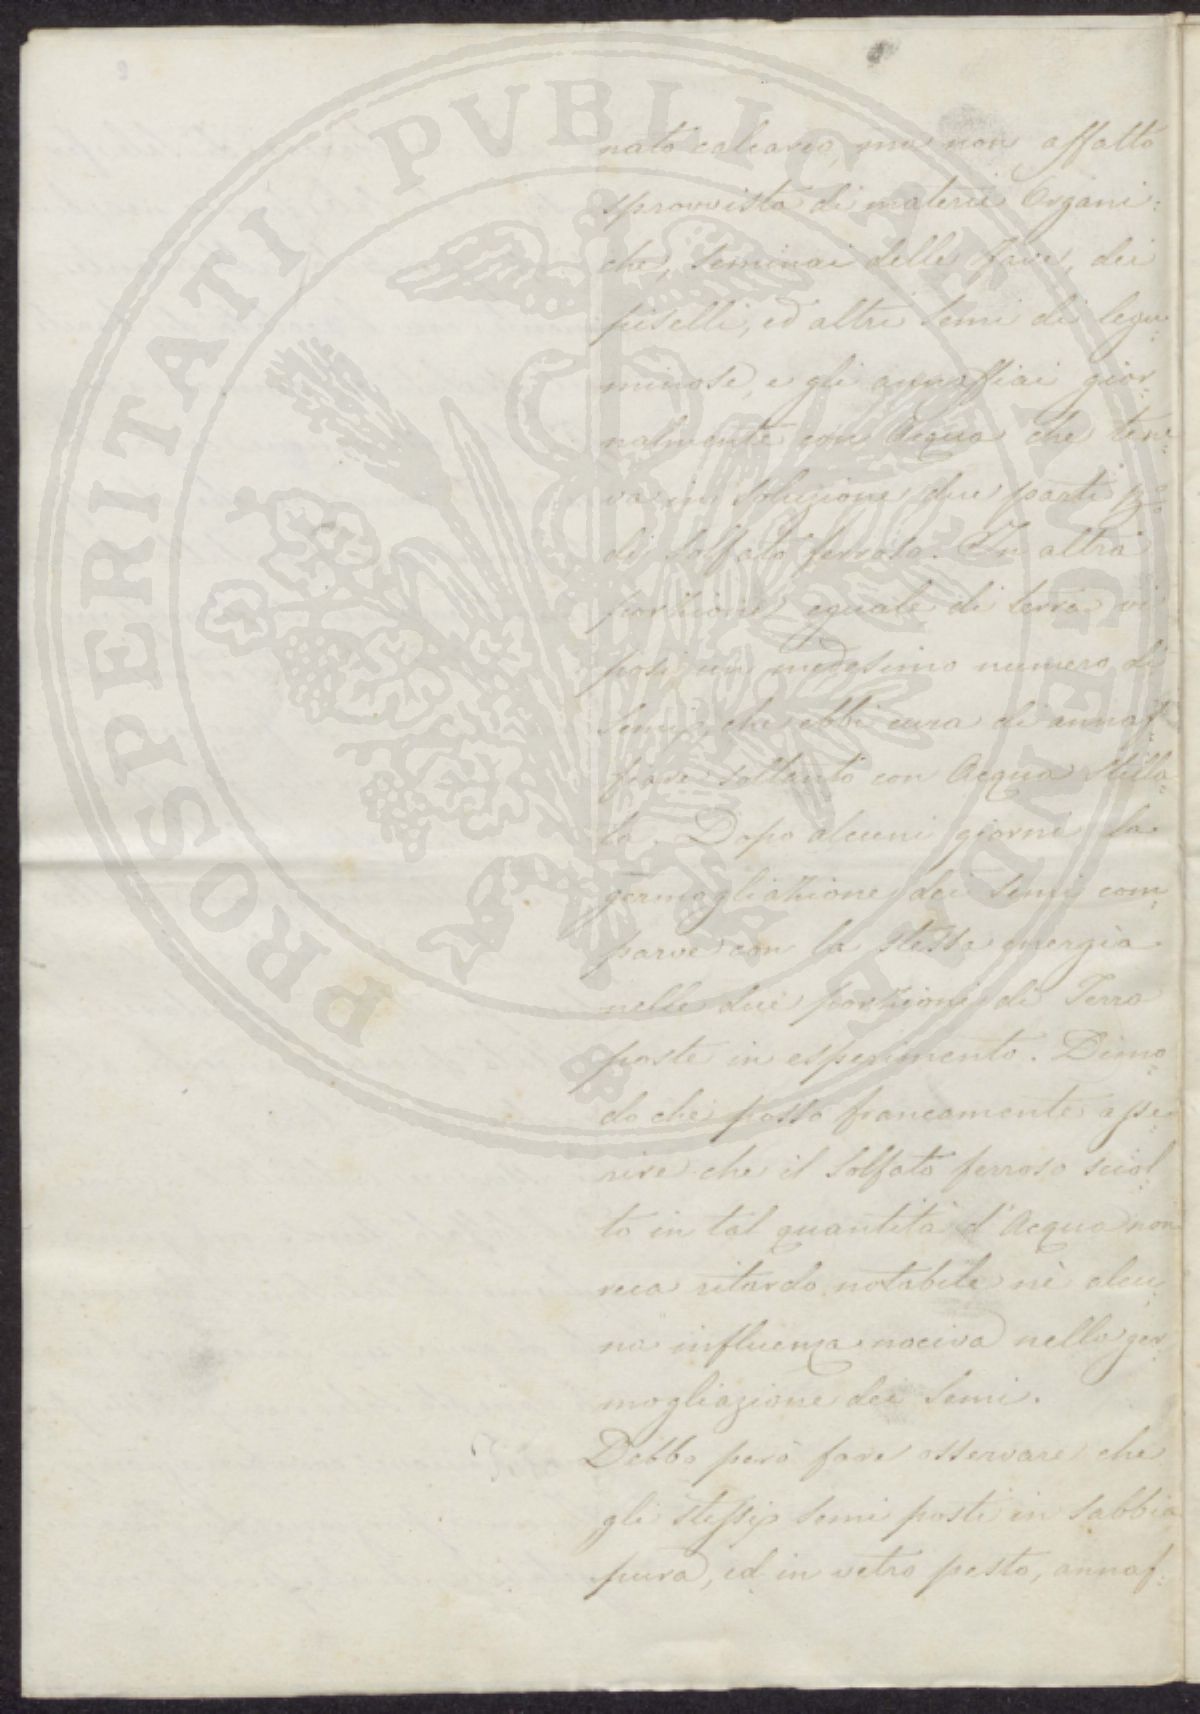 PROSPERITATI PUBLICAE AUGENDAE
nato calcareo, ma non affatto
sprovvista di materie Organi:
che, seminai delle fave, dei
piselli, ed altri semi di legu:
minose, e gli annaffiai gior:
nalmente con Acqua che tene:
va in soluzione due parti p%
di solfato ferroso. In altra
porzione eguale di terra vi
posi un medesimo numero di
semi, che ebbi cura di annaf:
fiare soltanto con Acqua stilla:
ta. Dopo alcuni giorni la
germogliazione dei semi com:
parve con la stessa energia
nelle due porzioni di Terra
poste in esperimento. Dimo:
do che posso francamente asse:
rire che il Solfato ferroso sciol:
to in tal quantità d'Acqua non
reca ritardo notabile nè alcu:
na influenza nociva nella ger:
mogliazione dei Semi.
Debbo però fare osservare che
gli stessi semi posti in sabbia
pura, ed in vetro pesto, annaf: